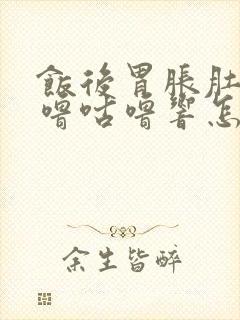 飯後胃脹肚
嘈咕嘈響怎
余生皆醉